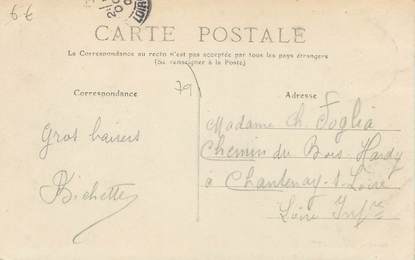 6-6
CARTE POSTALE
La Correspondance au recto n'est pas acceptée par tous les pays étrangers
(Se renseigner à la Poste)
Correspondance
79
Adresse
Gros baisers
Bichette
Madame Ch Foglia
Chemin du Bois Hardy
à Chantenay-s-Loire
Loire Infre